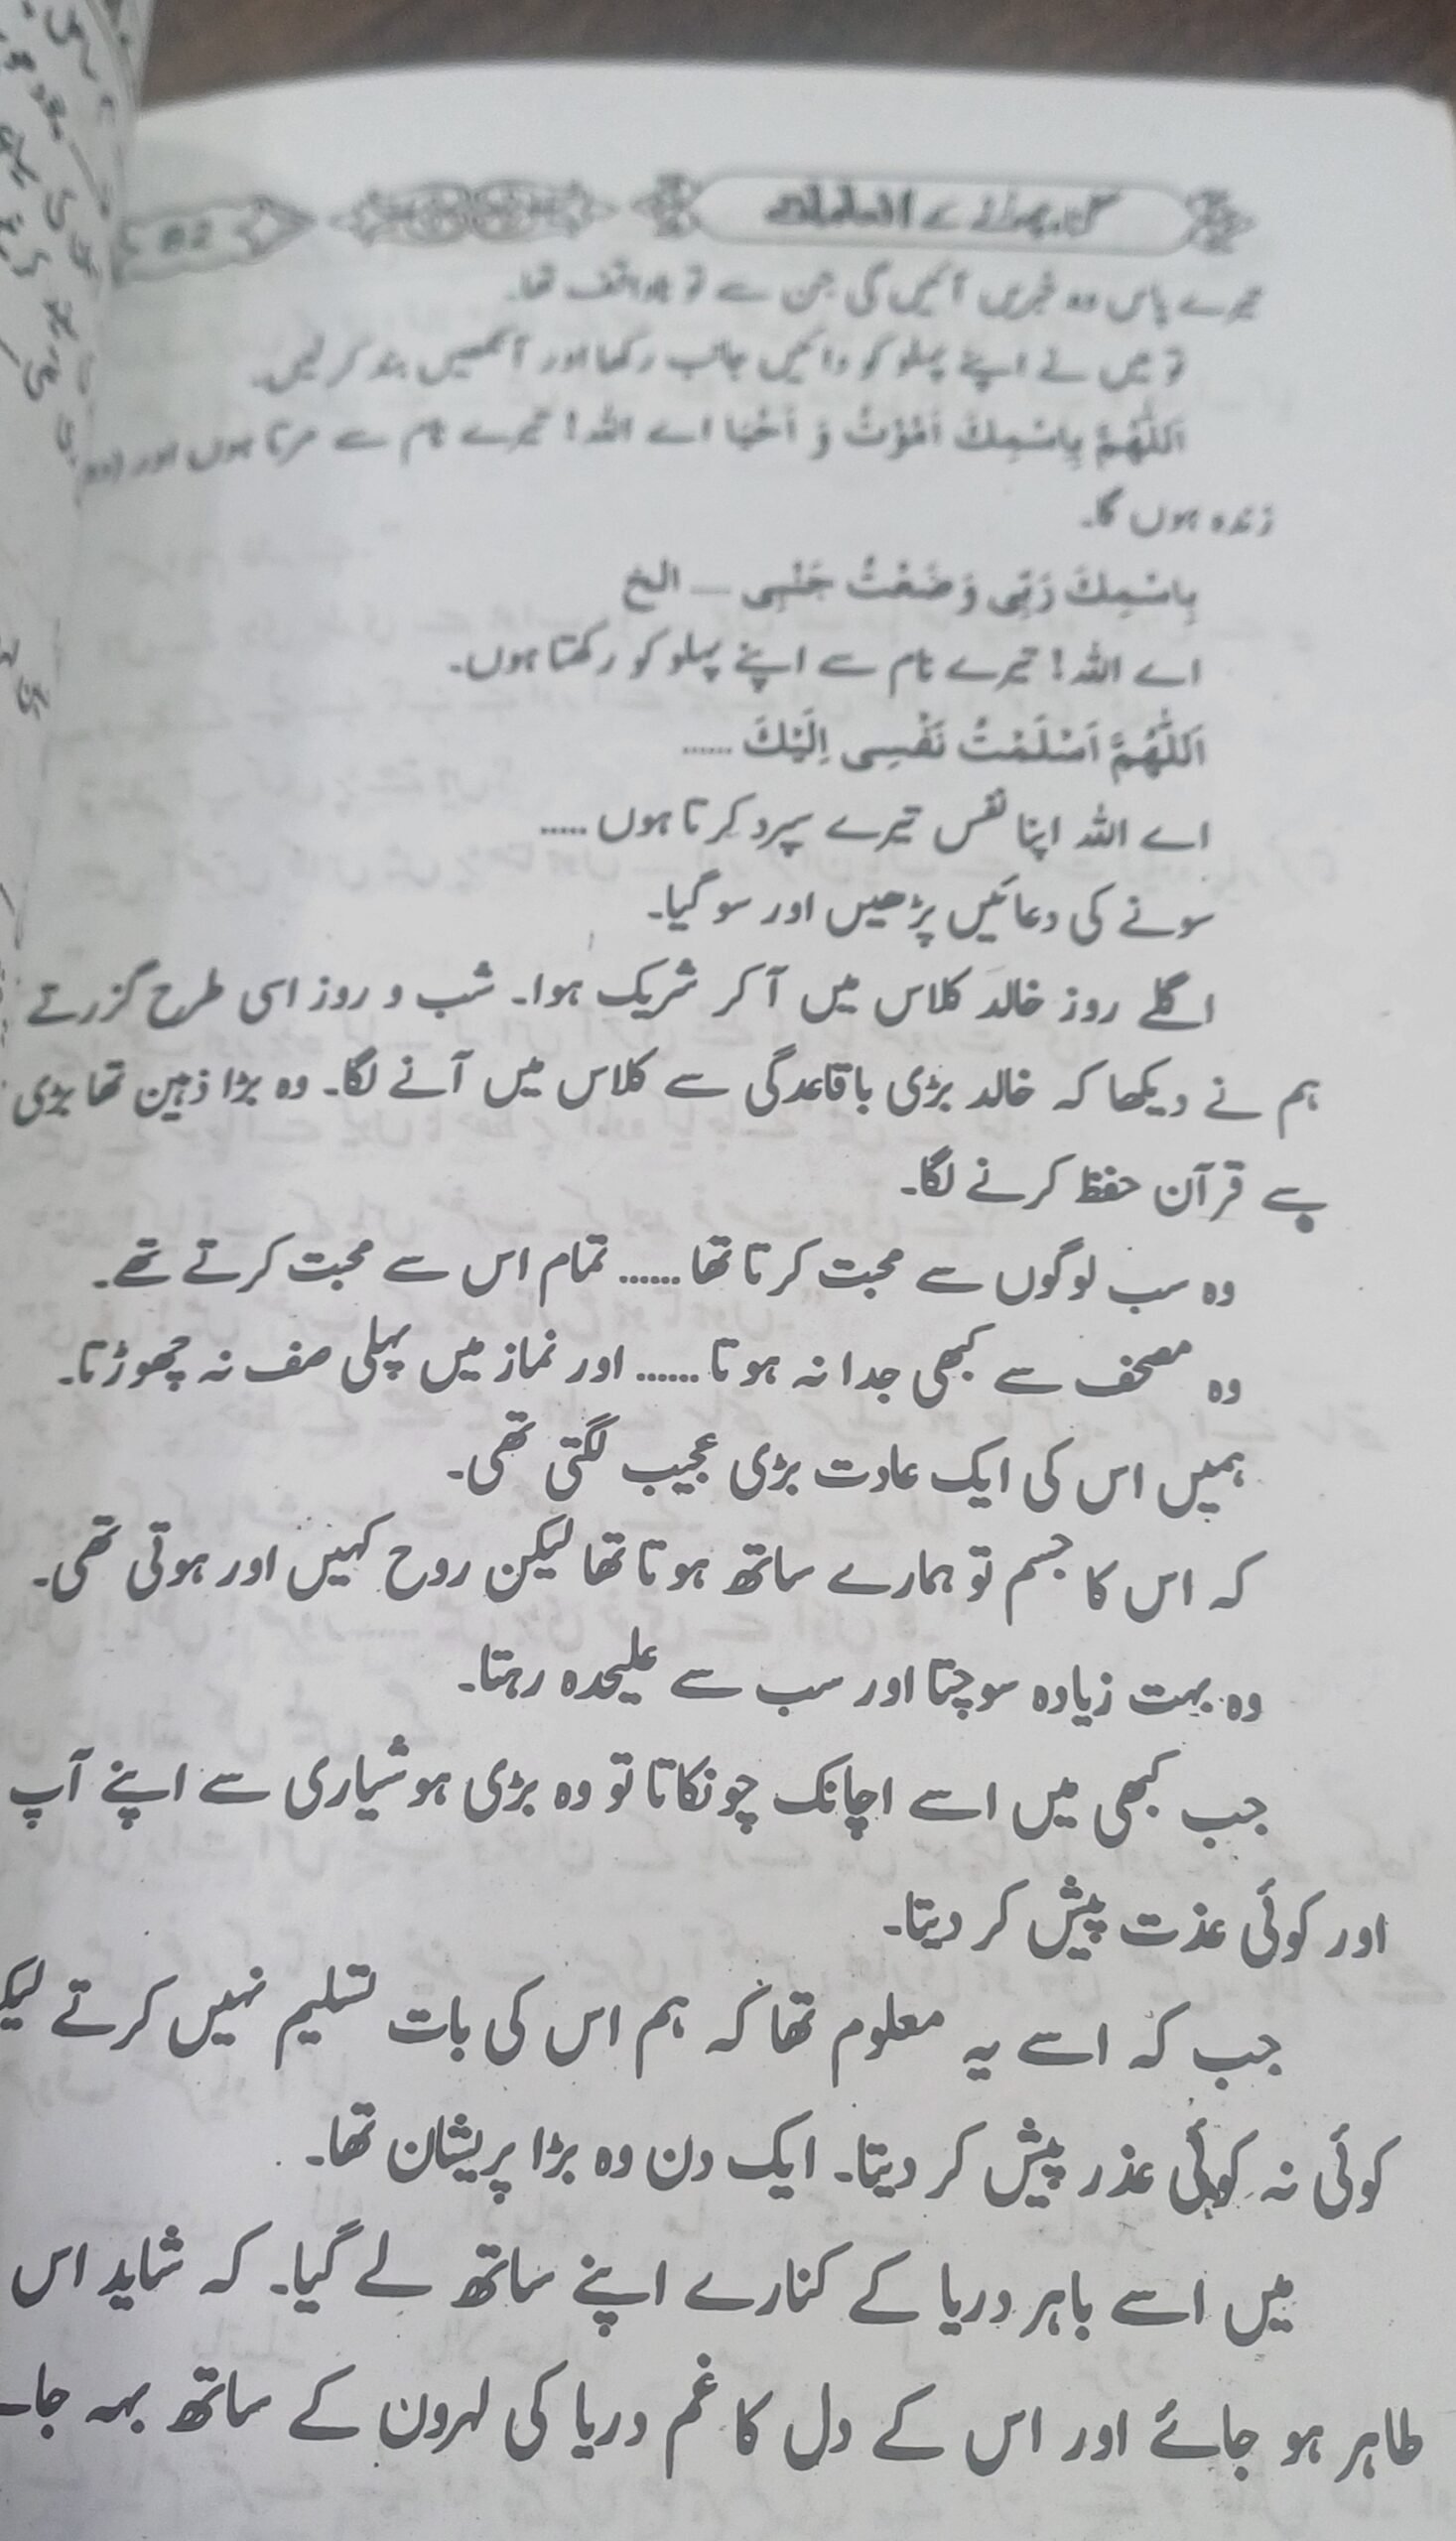 گناہ چھوڑنے کے انعامات
82
تیرے پاس وہ خبریں آئیں گی جن سے تو ناواقف تھا۔
تو میں نے اپنے پہلو کو دائیں جانب رکھا اور آنکھیں بند کر لیں۔
اَللّٰهُمَّ بِاسْمِكَ اَمُوْتُ وَ اَحْيَا اے اللہ! تیرے نام سے مرتا ہوں اور
زندہ ہوں گا۔
بِاسْمِكَ رَبِّى وَضَعْتُ جَنْبِى ---- الخ
اے اللہ! تیرے نام سے اپنے پہلو کو رکھتا ہوں۔
اَللّٰهُمَّ اَسْلَمْتُ نَفْسِى اِلَيْكَ ......
اے اللہ اپنا نفس تیرے سپرد کرتا ہوں .....
سونے کی دعائیں پڑھیں اور سو گیا۔
اگلے روز خالد کلاس میں آ کر شریک ہوا۔ شب و روز اسی طرح گزرتے
ہم نے دیکھا کہ خالد بڑی باقاعدگی سے کلاس میں آنے لگا۔ وہ بڑا ذہین تھا بڑی
سے قرآن حفظ کرنے لگا۔
وہ سب لوگوں سے محبت کرتا تھا ...... تمام اس سے محبت کرتے تھے۔
وہ مصحف سے کبھی جدا نہ ہوتا ...... اور نماز میں پہلی صف نہ چھوڑتا۔
ہمیں اس کی ایک عادت بڑی عجیب لگتی تھی۔
کہ اس کا جسم تو ہمارے ساتھ ہوتا تھا لیکن روح کہیں اور ہوتی تھی۔
وہ بہت زیادہ سوچتا اور سب سے علیحدہ رہتا۔
جب کبھی میں اسے اچانک چونکاتا تو وہ بڑی ہوشیاری سے اپنے آپ
اور کوئی عذت پیش کر دیتا۔
جب کہ اسے یہ معلوم تھا کہ ہم اس کی بات تسلیم نہیں کرتے
کوئی نہ کوئی عذر پیش کر دیتا۔ ایک دن وہ بڑا پریشان تھا۔
میں اسے باہر دریا کے کنارے اپنے ساتھ لے گیا۔ کہ شاید اس
طاہر ہو جائے اور اس کے دل کا غم دریا کی لہرون کے ساتھ بہہ